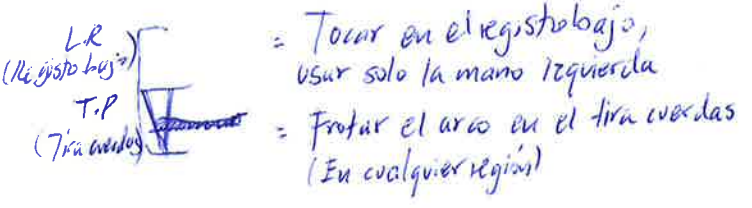 L.R
(Registro bajo)
= Tocar en el registro bajo,
usar solo la mano izquierda
T.P
(Tira cuerdas)
= Frotar el arco en el tira cuerdas
(En cualquier región)